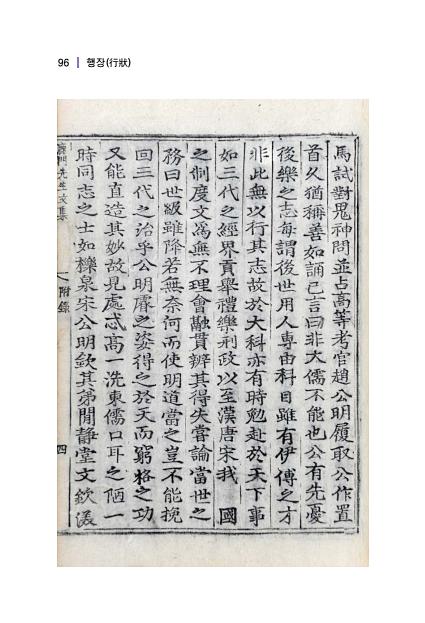 96 | 행장(行狀)
馬試對鬼神問並占高等考官趙公明履取公作置
首久猶稱善如誦己言曰非大儒不能也公有先憂
後樂之志每謂後世用人專由科目雖有伊傅之才
非此無以行其志故於大科亦有時勉赴於天下事
如三代之經界貢舉禮樂刑政以至漢唐宋我 國
之制度文爲無不理會融貫辨其得失嘗論當世之
務曰世級雖降若無奈何而使明道當之豈不能挽
回三代之治乎公明睿之姿得之於天而窮格之功
又能直造其妙故見處忒高一洗東儒口耳之陋一
時同志之士如櫟泉宋公明欽其弟閒靜堂文欽渼
先生文集
附錄
四